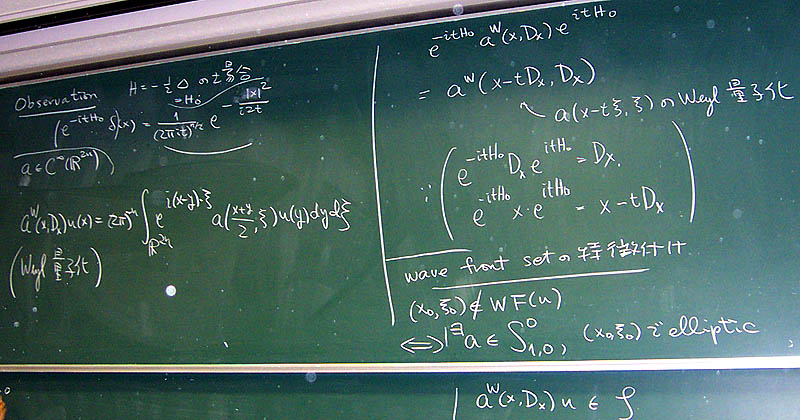 Observation H = -½△ の場合
= H₀
(e^{-itH₀} δ)(x) = 1/(2πit)^{n/2} e^{|x|²/i2t}
a ∈ C^∞(ℝ^{2n})
a^w(x, D_x)u(x) = (2π)^{-n} ∫_{ℝ^{2n}} e^{i(x-y)·ξ} a(x+y/2, ξ) u(y) dy dξ
(Weyl 量子化)
e^{-itH₀} a^w(x, D_x) e^{itH₀}
= a^w(x-tD_x, D_x)
a(x-tξ, ξ) の Weyl 量子化
∵ (e^{-itH₀} D_x e^{itH₀} = D_x,
e^{-itH₀} x · e^{itH₀} = x-tD_x)
wave front set の特徴付け
(x₀, ξ₀) ∉ WF(u)
⟺ ∃a ∈ S⁰_{1,0}, (x₀, ξ₀) で elliptic
a^w(x, D_x) u ∈ 𝒮